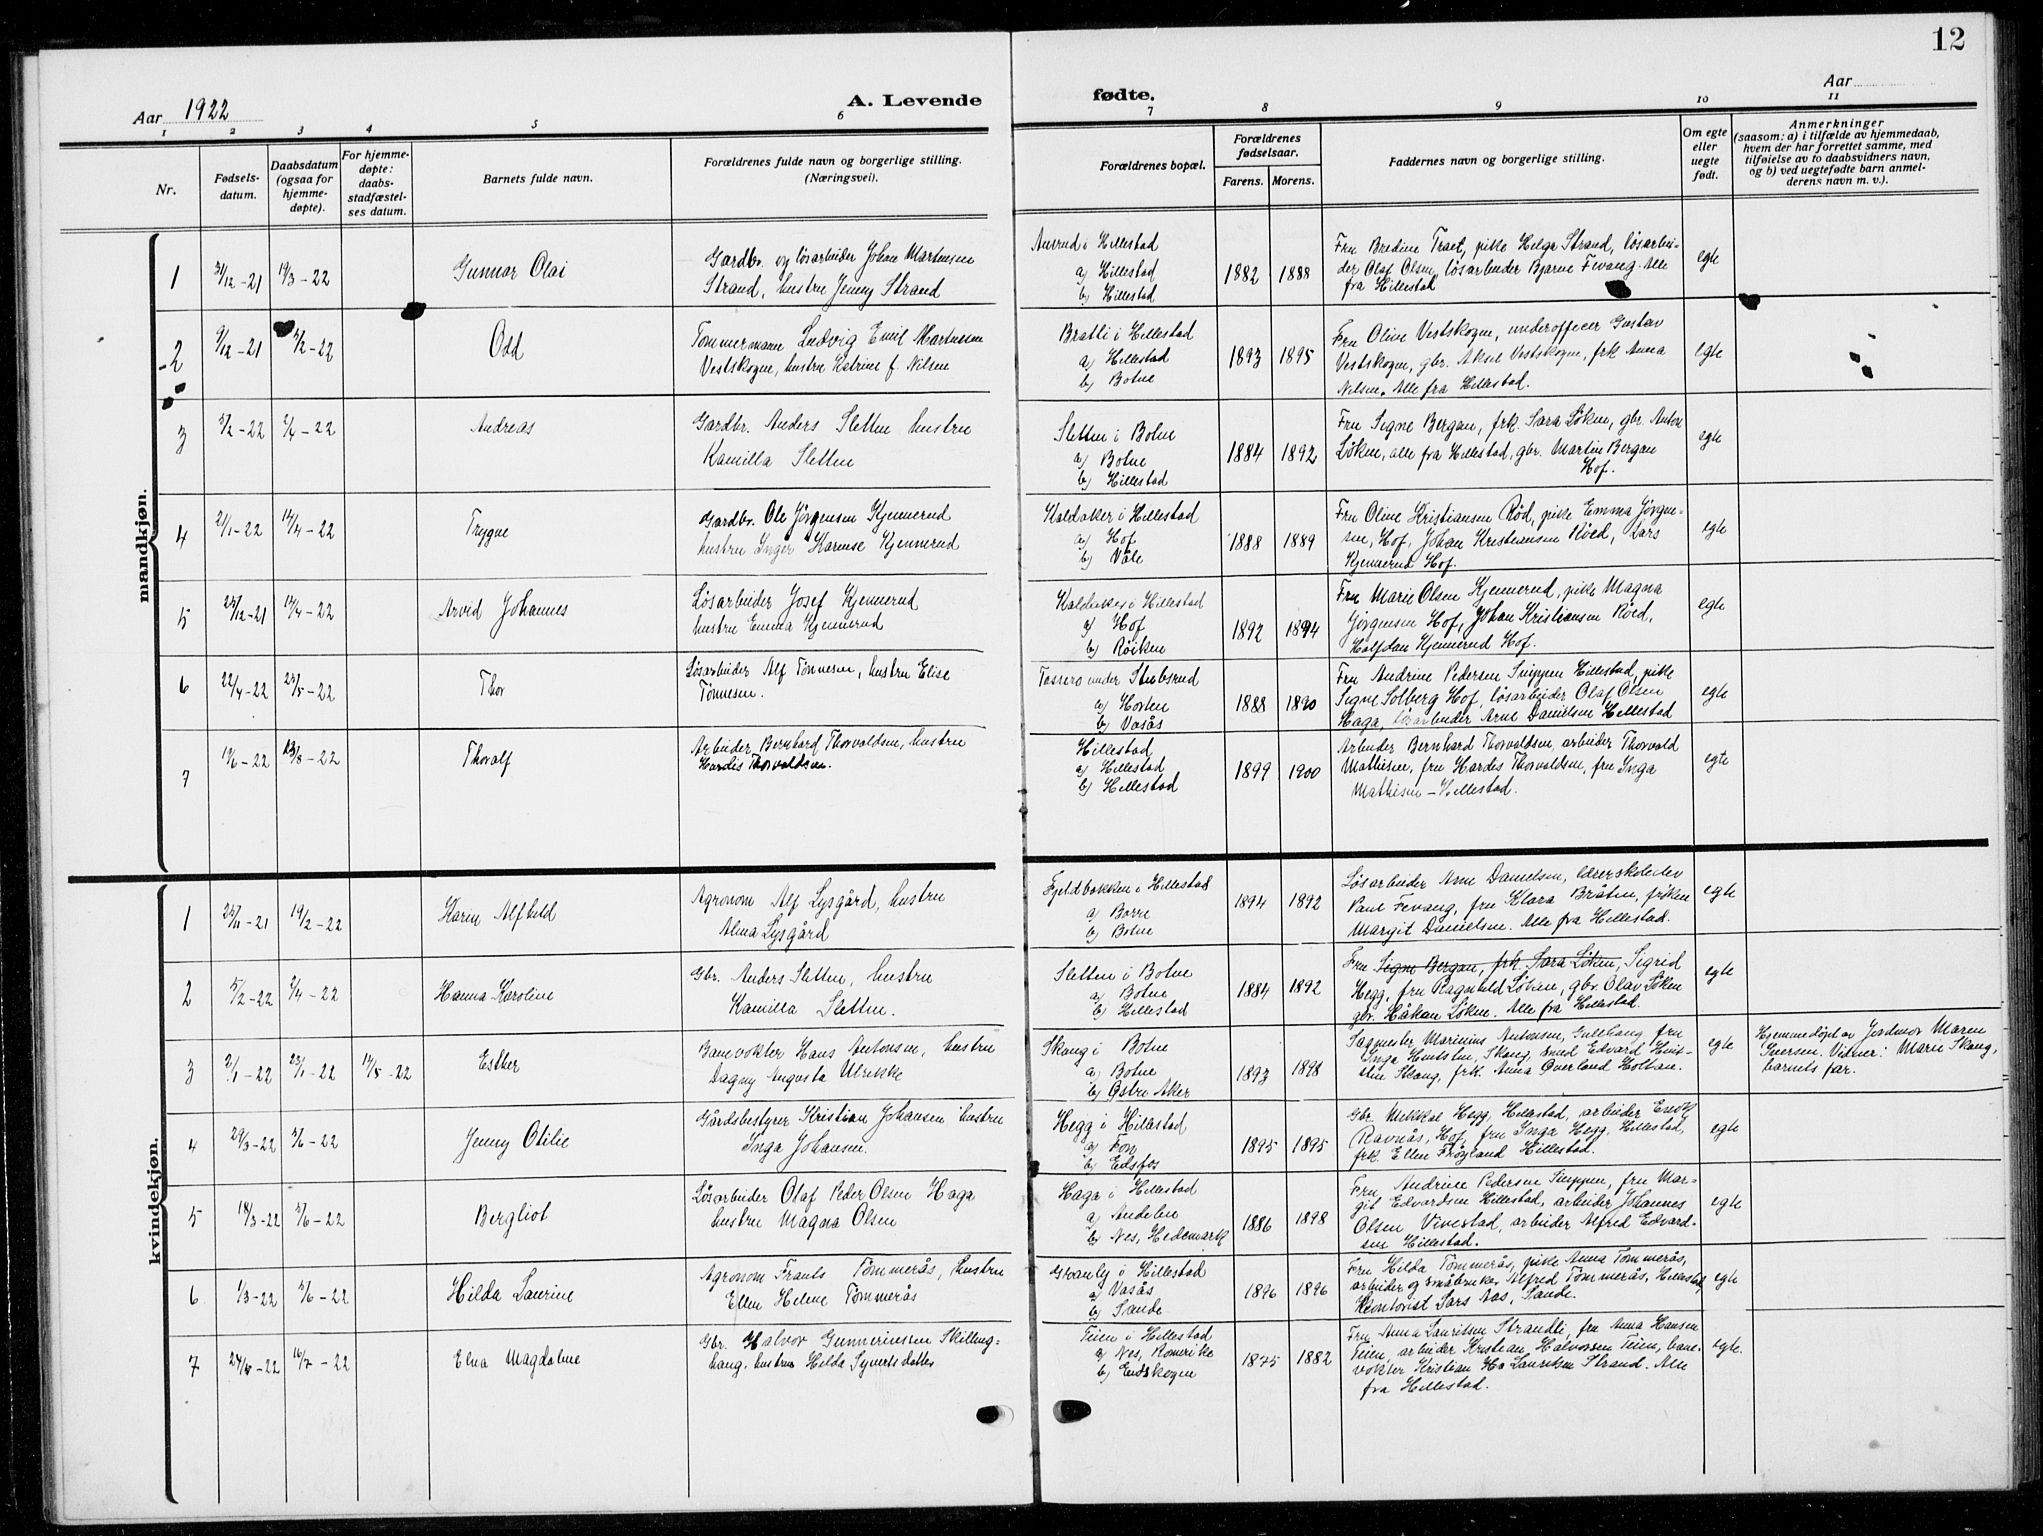 12
Aar 1922
A. Levende
fødte.
Aar
1 2 3 4 5 6 7 8 9 10 11
Nr.
Fødsels-
datum.
Daabsdatum
(ogsaa for
hjemme-
døpte).
For hjemme-
døpte:
daabs-
stadfæstel-
ses datum.
Barnets fulde navn.
Forældrenes fulde navn og borgerlige stilling.
(Næringsvei).
Forældrenes bopæl.
Forældrenes
fødselsaar.
Farens. Morens.
Faddernes navn og borgerlige stilling.
Om egte
eller
uegte
født.
Anmerkninger
(saasom: a) i tilfælde av hjemmedaab,
hvem der har forrettet samme, med
tilføielse av to daabsvidners navn,
og b) ved uegtefødte barn anmel-
derens navn m. v.).
mandkjøn.
1 31/12-21 19/3-22 Gunnar Olai
Gardbr. og løsarbeider Johan Martinsen
Strand, hustru Jenny Strand
Aasrud i Hillestad
a) Hillestad
b) Hillestad
1882 1888
Fru Bredine Traet, pike Helga Strand, løsarbei-
der Olaf Olsen, løsarbeider Bjarne Fevang. Alle
fra Hillestad
egte
2 9/12-21 5/2-22 Odd
Tømmermann Ludvig Emil Martinsen
Vestskogen, hustru Katrine f. Nilsen
Bratli i Hillestad
a) Hillestad
b) Botne
1893 1895
Fru Oline Vestskogen, underofficer Gustav
Vestskogen, gbr. Aksel Vestskogen, frk Anna
Nilsen. Alle fra Hillestad.
egte
3 5/2-22 2/4-22 Andreas
Gardbr. Anders Sletten hustru
Kamilla Sletten
Sletten i Botne
a) Botne
b) Hillestad
1884 1892
Fru Signe Bergan, frk. Sara Løken, gbr. Anton
Løken, alle fra Hillestad, gbr. Martin Bergan
Hof.
egte
4 21/1-22 17/4-22 Trygve
Gardbr. Ole Jørgensen Kjennerud
hustru Inger Karense Kjennerud
Kaldaker i Hillestad
a) Hof
b) Våle
1888 1889
Fru Oline Kristiansen Rød, pike Emma Jørgen-
sen, Hof, Johan Kristiansen Røed, Lars
Kjennerud Hof.
egte
5 25/12-21 17/4-22 Arvid Johannes
Løsarbeider Josef Kjennerud
hustru Emma Kjennerud
Kaldaker i Hillestad
a) Hof
b) Røiken
1892 1894
Fru Marie Olsen Kjennerud, pike Magna
Jørgensen Hof, Johan Kristiansen Røed,
Halfdan Kjennerud Hof.
egte
6 22/4-22 25/5-22 Thor
Løsarbeider Alf Tønnesen, hustru Elise
Tønnesen.
under Stubsrud
a) Horten
b) Vasås
1888 1890
Fru Andrine Pedersen Snippen Hillestad, pike
Signe Solberg Hof, løsarbeider Olaf Olsen
Haga, løsarbeider Arne Danielsen Hillestad
egte
7 19/6-22 13/8-22 Thoralf
Arbeider Bernhard Thorvaldsen, hustru
Hardis Thorvaldsen.
Hillestad
a) Hillestad
b) Hillestad
1899 1900
Arbeider Bernhard Thorvaldsen, arbeider Thorvald
Mathisen, fru Hardis Thorvaldsen, fru Inga
Mathisen - Hillestad.
egte
kvindekjøn.
1 25/11-21 19/2-22 Karin Alfhild
Agronom Alf Lysgård, hustru
Alma Lysgård
Fjeldbakken i Hillestad
a) Borre
b) Botne
1894 1892
Løsarbeider Arne Danielsen, lærerskoleelev
Paul Fevang, fru Klara Bråten, frøken
Margit Danielsen. Alle fra Hillestad.
egte
2 5/2-22 2/4-22 Hanna Karoline
Gbr. Anders Sletten, hustru
Kamilla Sletten.
Sletten i Botne
a) Botne
b) Hillestad
1884 1892
Fru Signe Bergan, frk. Sara Løken, Sigrid
Hegg, fru Ragnhild Løken, gbr. Olav Løken
gbr. Håkan Løken. Alle fra Hillestad.
egte
3 2/1-22 23/1-22 14/5-22 Esther
Banevokter Hans Antonsen, hustru
Dagny Augusta Ulrikke
Skaug i Botne
a) Botne
b) Østre Aker
1893 1898
Sagmester Marinius Antonsen, Gullhaug, fru
Inga Hintsten, Skaug, smed Edvard Hint-
sten Skaug, frk. Anna Øverland Holtan.
egte
Hjemmedøpt av Jordmor Maren
Iversen. Vitner: Marie Skaug,
barnets far.
4 29/3-22 5/6-22 Jenny Otilie
Gårdsbestyrer Kristian Johansen hustru
Inga Johansen.
Hegg i Hillestad
a) Fon
b) Eidsfos
1895 1895
Gbr. Mikkal Hegg, Hillestad, arbeider
Ravnås, Hof, fru Inga Hegg, Hillestad,
frk. Ellen Frøyland Hillestad.
egte
5 18/3-22 5/6-22 Bergliot
Løsarbeider Olaf Peder Olsen Haga
hustru Magna Olsen
Haga i Hillestad
a) Andebu
b) Nes, Hedemark
1886 1898
Fru Andrine Pedersen Snippen, fru Mar-
git Edvardsen Hillestad, arbeider Johannes
Olsen Vivestad, arbeider Alfred Edvard-
sen Hillestad.
egte
6 1/3-22 5/6-22 Hilda Laurine
Agronom Frants Tømmerås, hustru
Ellen Helene Tømmerås
Granly i Hillestad
a) Vasås
b) Sande
1896 1896
Fru Hilda Tømmerås, pike Anna Tømmerås,
arbeider og småbruker Alfred Tømmerås, Hillestad
Kontorist Lars Aas, Sande.
egte
7 24/6-22 16/7-22 Elna Magdalene
Gbr. Halvor Gunneriussen Skilling-
haug, hustru Hilda Synertsdatter
Teien i Hillestad
a) Nes, Romerike
b) Eidskogen
1875 1882
Fru Anna Lauritsen Strandli, fru Anna Hansen
Teien, arbeider Kristian Halvorsen Teien, bane-
vokter Kristian Lauritsen Strand. Alle
fra Hillestad.
egte.